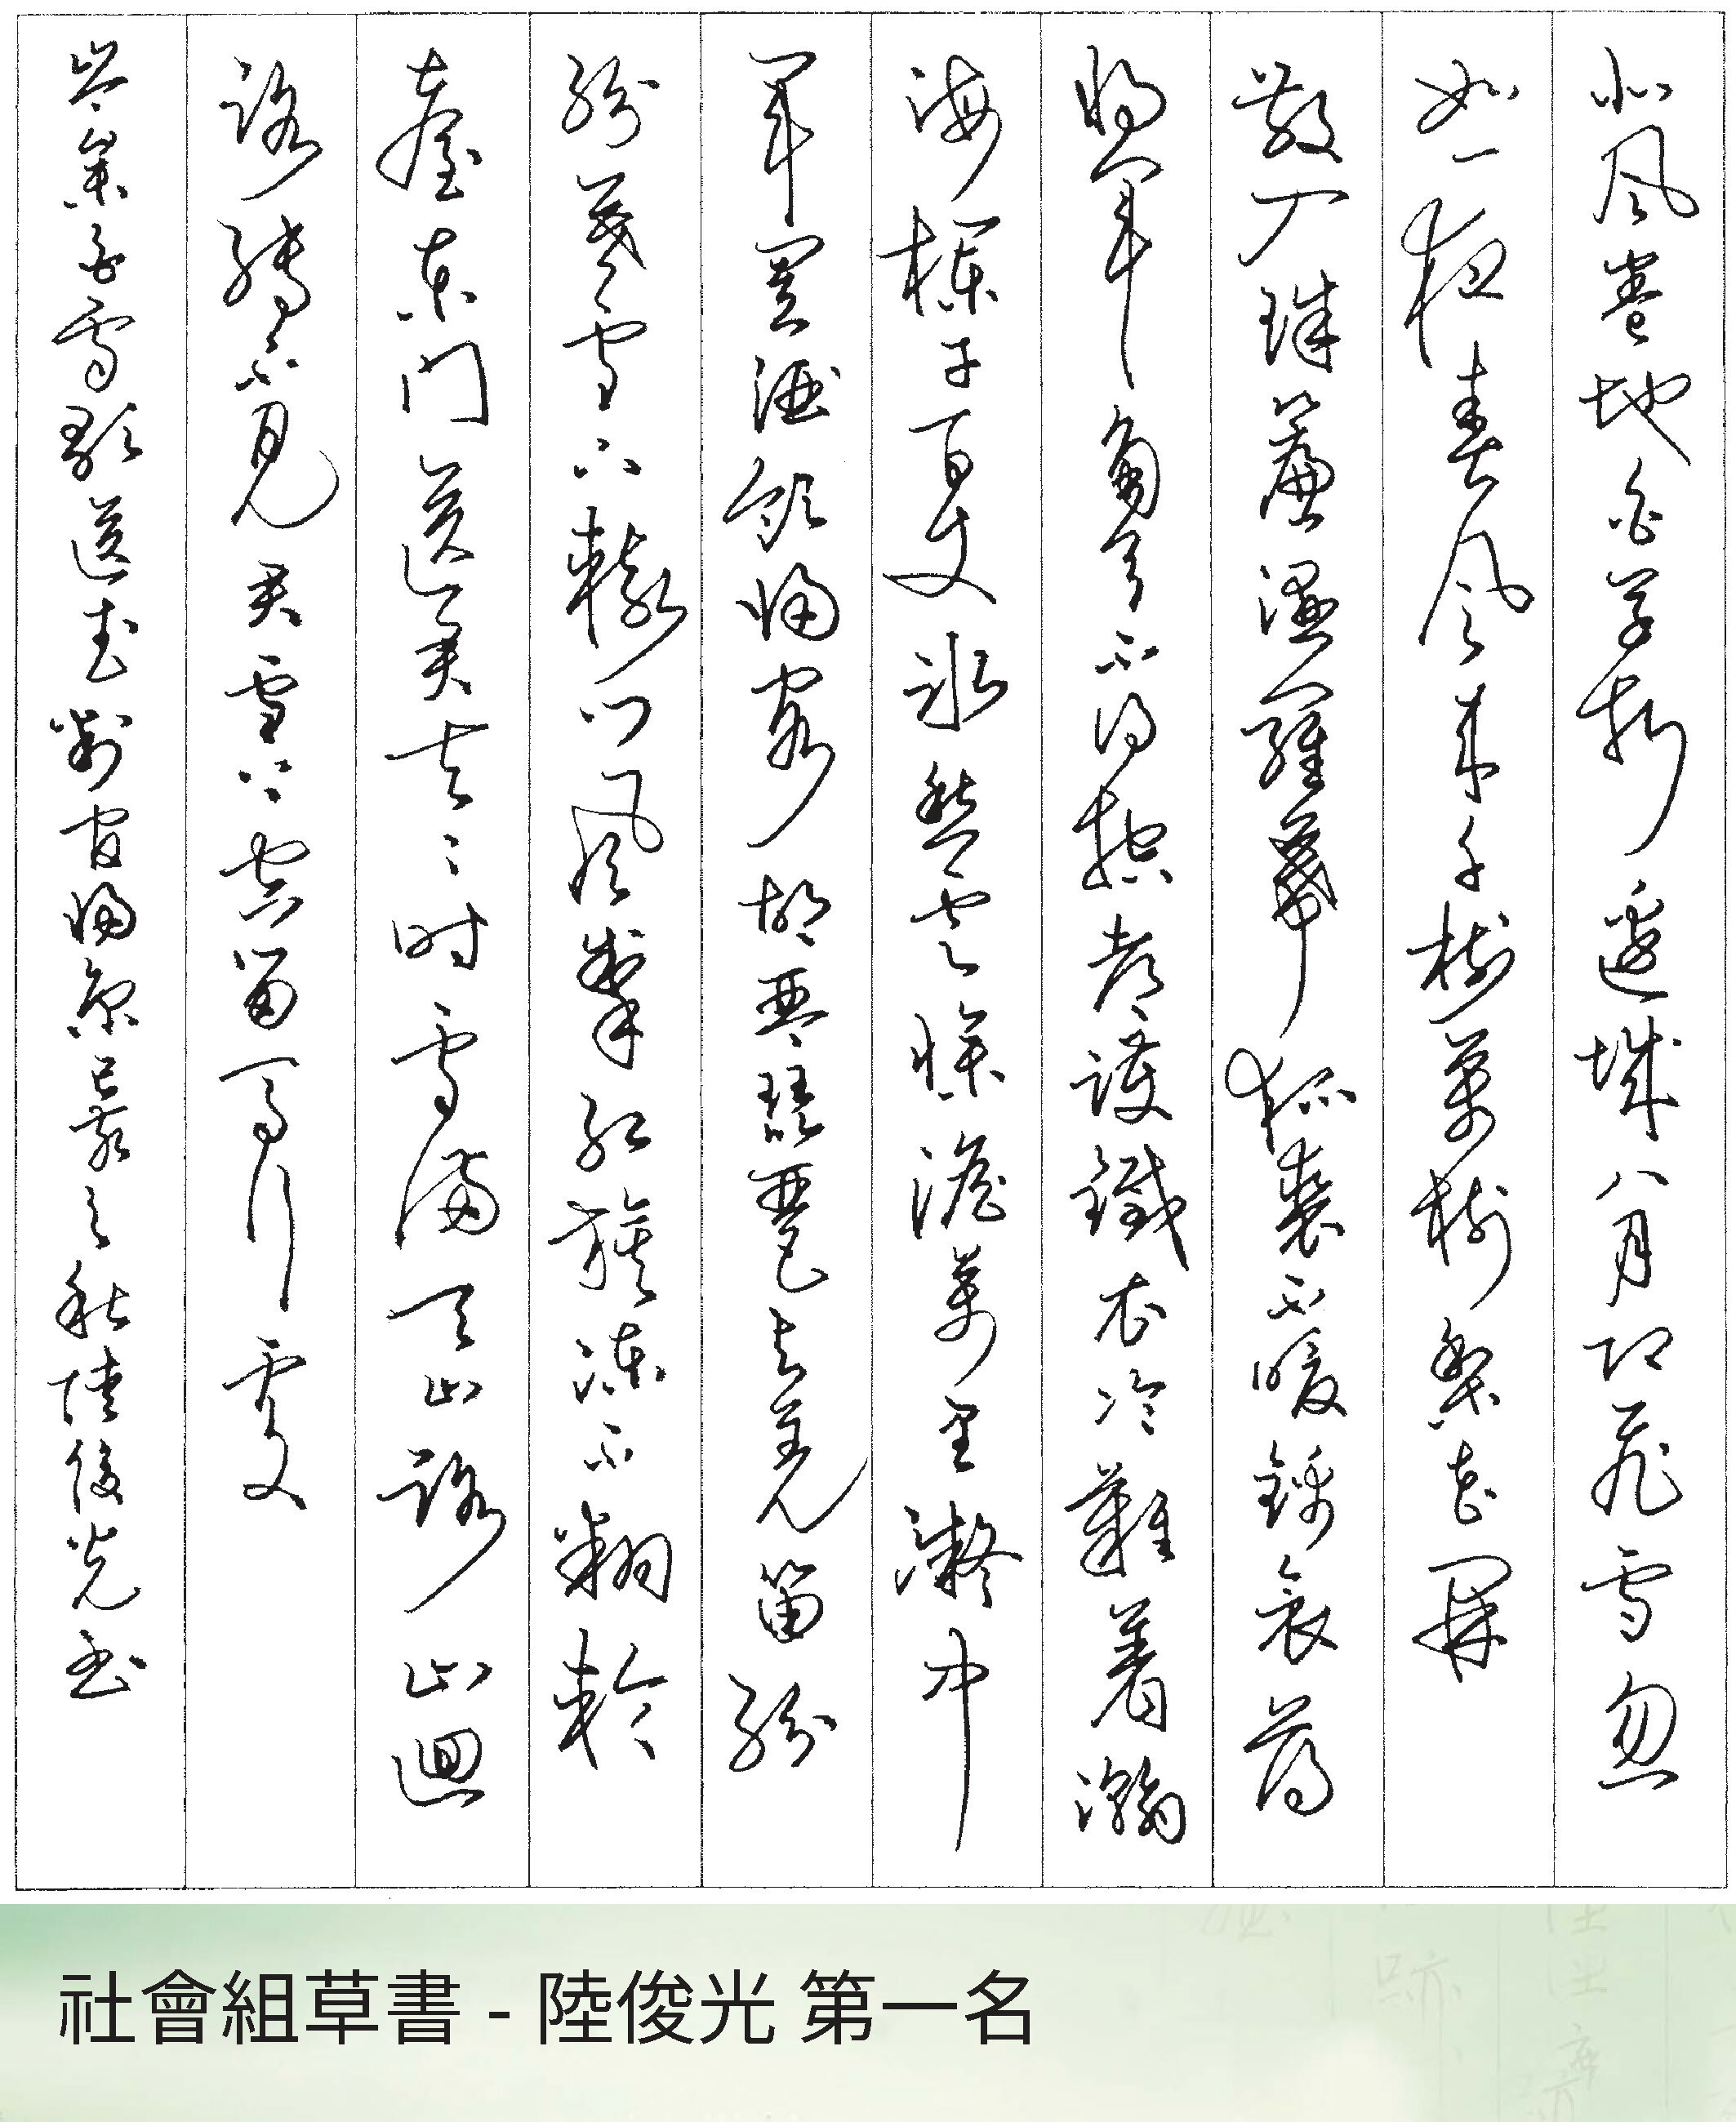 北風卷地白草折邊城八月即飛雪忽
如一夜春風來千樹萬樹梨花開
散入珠簾濕羅幕狐裘不暖錦衾薄
將軍角弓不得控都護鐵衣冷難著瀚
海欄干百丈冰愁雲慘澹萬里凝中
軍置酒飲歸客胡琴琵琶與羌笛紛
紛暮雪下轅門風掣紅旗凍不翻輪
臺東門送君去々時雪滿天山路山迴
路轉不見君雪上空留馬行處
岑參白雪歌送武判官歸京己亥之秋陸俊光書
社會組草書 - 陸俊光 第一名